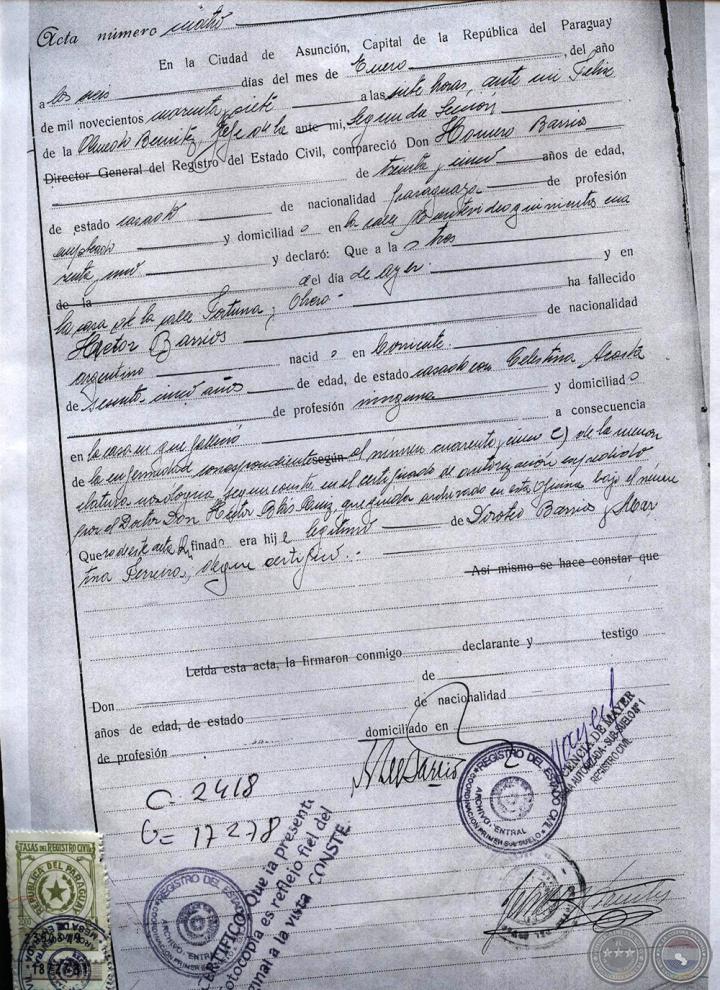 Acta número cuatro
En la Ciudad de Asunción, Capital de la República del Paraguay
a los seis días del mes de Enero, del año
de mil novecientos cuarenta y siete a las siete horas, ante mi Felix
de la Olmedo Benitez, Jefe de la ante mi, Segunda Sección
Director General del Registro del Estado Civil, compareció Don Homero Barrios
de treinta y cinco años de edad,
de estado casado de nacionalidad paraguaya de profesión
empleado y domiciliado en la calle Montevideo quinientos cua
renta y uno y declaró: Que a la s tres
de la del día de ayer. y en
la casa de la calle Fortuna y Otero ha fallecido
Hector Barrios de nacionalidad
argentino nacid o en Corrientes.
de sesenta y cinco años de edad, de estado casado con Celestina Acosta
de profesión ninguna y domiciliado
en la casa en que falleció a consecuencia
de la enfermedad correspondiente según al número cuarenta y cinco c) de la nomen
clatura nosológica, según consta en el certificado de autorización expedido
por el Doctor Don Hector Blas Ruiz, que queda archivado en esta Oficina bajo el número
Que ro de este acta El finado, era hij o legítimo de Doroteo Barrios y Mar
tina Ferreira, de que certifico.
Así mismo se hace constar que
Leída esta acta, la firmaron conmigo declarante y testigo
Don de
años de edad, de estado de nacionalidad
de profesión domiciliado en
C. 2418
G= 17278
REGISTRO DEL ESTADO CIVIL
ARCHIVO CENTRAL
LICENCIA DE MAYER
SUB-SUELO Nº 1
REGISTRO CIVIL
REGISTRO DEL ESTADO CIVIL
ARCHIVO CENTRAL
CERTIFICO: Que la presente
fotocopia es reflejo fiel del
original a la vista CONSTE.
TASAS DEL REGISTRO CIVIL
REPUBLICA DEL PARAGUAY